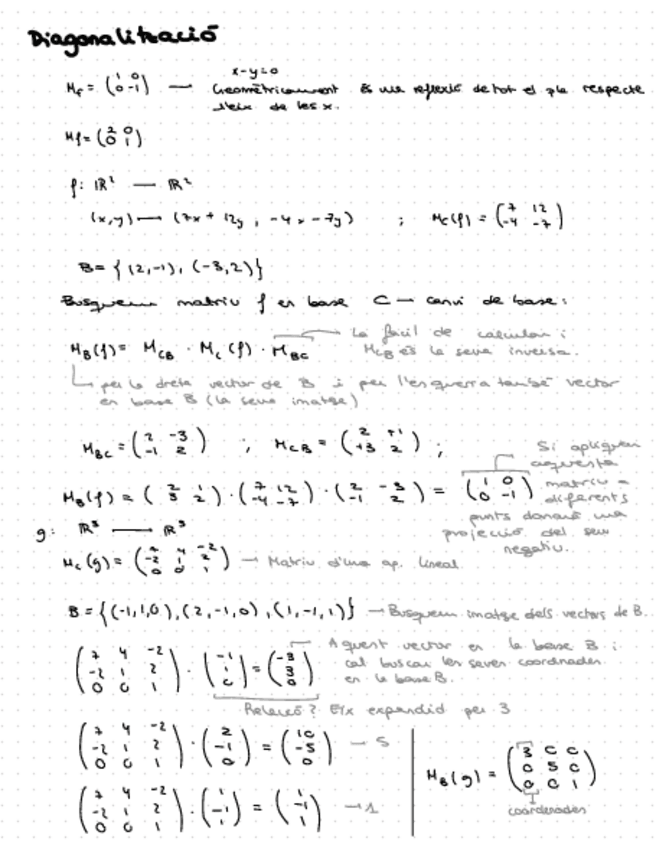 Diagonalització
x-y=0
Mf = (1 0 / 0 -1) — Geomètricament és una reflexió de tot el pla respecte
l'eix de les x.
Mf = (2 0 / 0 1)
f: ℝ² — ℝ²
(x,y) ⟼ (7x + 12y, -4x - 7y) ; Mc(f) = (7 12 / -4 -7)
B = {(2,-1), (-3,2)}
Busquem matriu f en base C — canvi de base:
La fàcil de calcular i
M_B(f) = M_CB · M_C(f) · M_BC
M_CB és la seva inversa.
per la dreta vector de B i per l'esquerra també vector
en base B (la seva imatge)
M_BC = (2 -3 / -1 2) ; M_CB = (2 +1 / +3 2) ;
Si apliquem
aquesta
M_B(f) = (2 1 / 3 2) · (7 12 / -4 -7) · (2 -3 / -1 2) = (1 0 / 0 -1)
matriu a
diferents
punts donarà una
projecció del seu
negatiu.
g: ℝ³ — ℝ³
M_C(g) = (7 4 -2 / -2 1 2 / 0 0 1) — Matriu d'una ap. lineal
B = {(-1,1,0), (2,-1,0), (1,-1,1)} — Busquem imatge dels vectors de B.
(7 4 -2 / -2 1 2 / 0 0 1) · (-1 / 1 / 0) = (-3 / 3 / 0)
Aquest vector en la base B i
cal buscar les seves coordenades
en la base B.
Relació? Eix expandid per 3
(7 4 -2 / -2 1 2 / 0 0 1) · (2 / -1 / 0) = (10 / -5 / 0) — 5
M_B(g) = (3 0 0 / 0 5 0 / 0 0 1)
coordenades
(7 4 -2 / -2 1 2 / 0 0 1) · (1 / -1 / 1) = (1 / -1 / 1) — 1